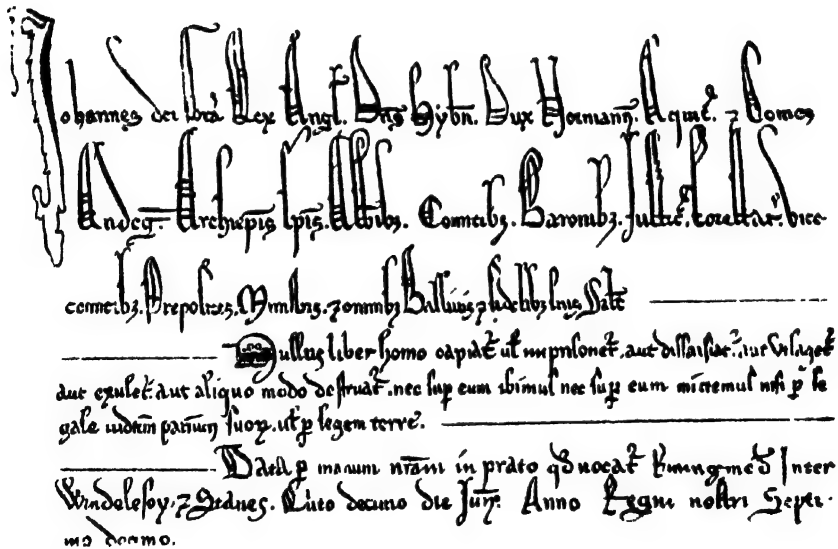 Johannes dei gra Rex Angl. Dns Hybn. Dux Normann. Aquit. ⁊ Comes
Andeg. Archiepis Epis. Abbibz. Comitibz. Baronibz. Justic. forestar. vice
comitibz. Prepositis. Ministris. ⁊ omnibz Ballivis ⁊ fidelibz suis Salt
Nullus liber homo capiat ul imprisonet. aut dissaisiat. aut utlaget
aut exulet. aut aliquo modo destruat. nec sup eum ibimus nec sup eum mittemus nisi p le
gale iudicium parium suoꝝ. ul p legem terre.
Data p manum nram in prato qd vocat Runingmed Inter
Windelesoꝝ. ⁊ Stanes. Quinto decimo die Junii. Anno Regni nostri Septi-
mo decimo.